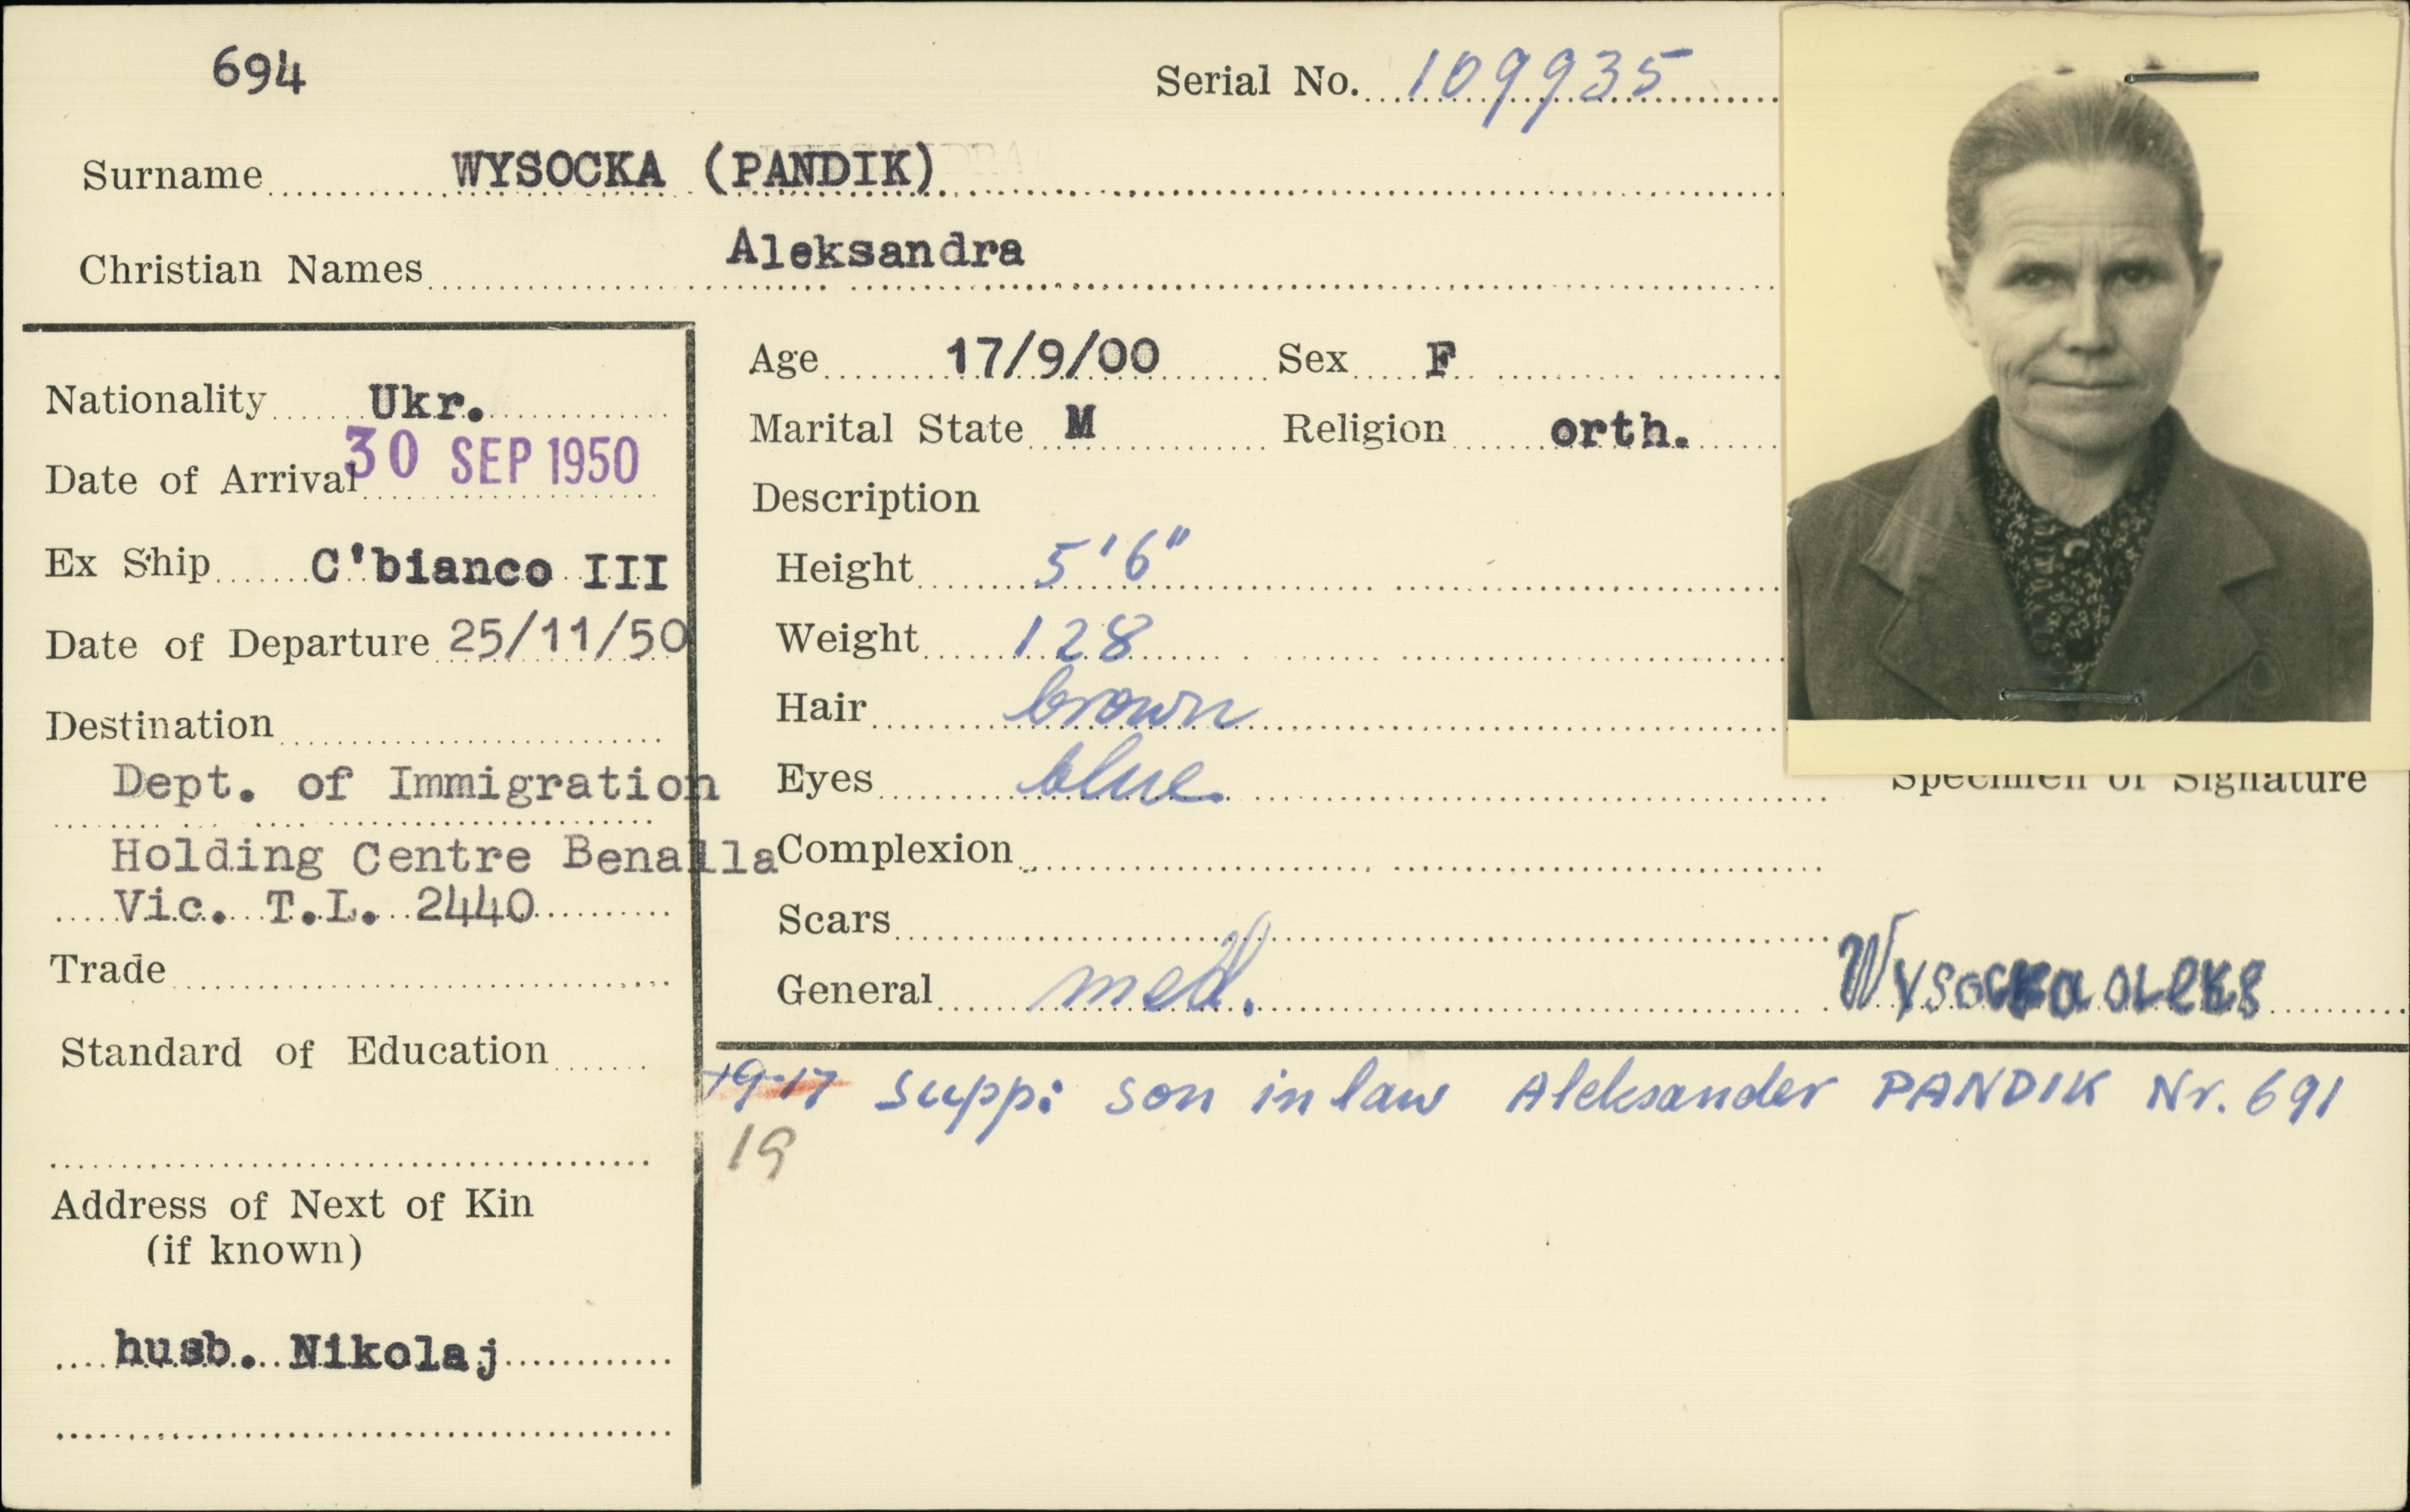 694
Serial No. 109935
Surname WYSOCKA (PANDIK)
Christian Names Aleksandra
Nationality Ukr.
Date of Arrival 30 SEP 1950
Ex Ship C'bianco III
Date of Departure 25/11/50
Destination
Dept. of Immigration
Holding Centre Benalla
Vic. T.L. 2440
Trade
Standard of Education
Address of Next of Kin
(if known)
husb. Nikolaj
Age 17/9/00 Sex F
Marital State M Religion orth.
Description
Height 5'6"
Weight 128
Hair brown
Eyes blue.
Complexion
Scars
General med.
Specimen of Signature
Wysocka oleks
supp: son in law Aleksander PANDIK Nr. 691
19